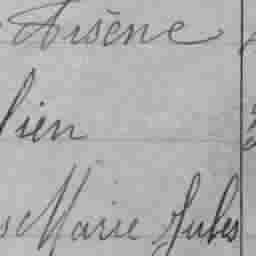 Arsène
lien
Marie Jules